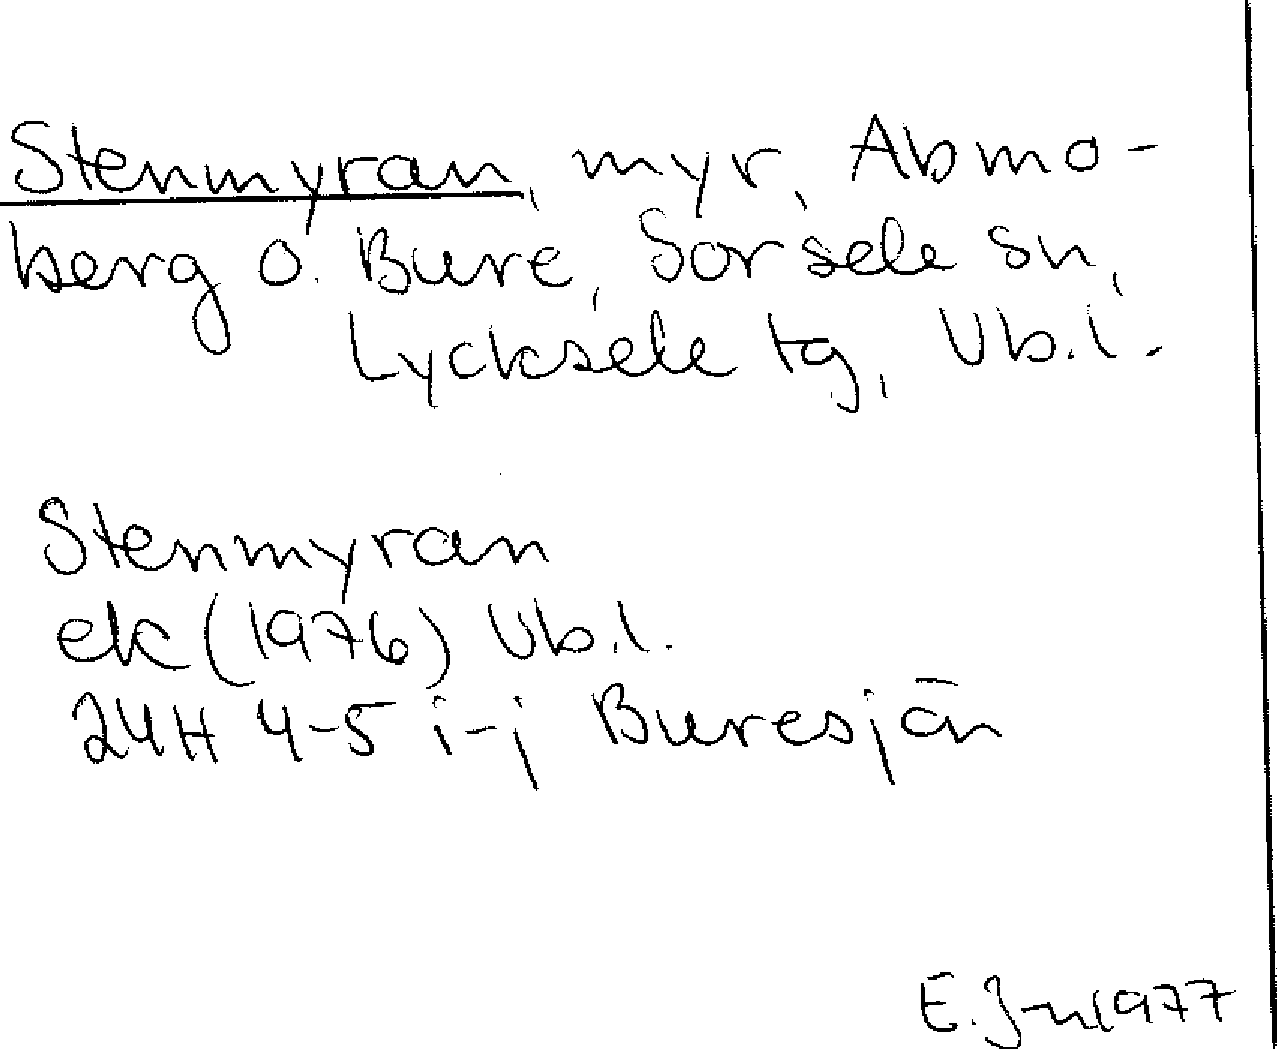 Stenmyran, myr, Abmo-
berg o. Bure, Sorsele sn,
Lycksele tg, Vb.l.
Stenmyran
ek (1976) Vb.l.
24H 4-5 i-j Buresjön
E. J-n 1977